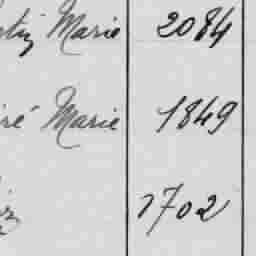 Marie 2084
ré Marie 1849
1702